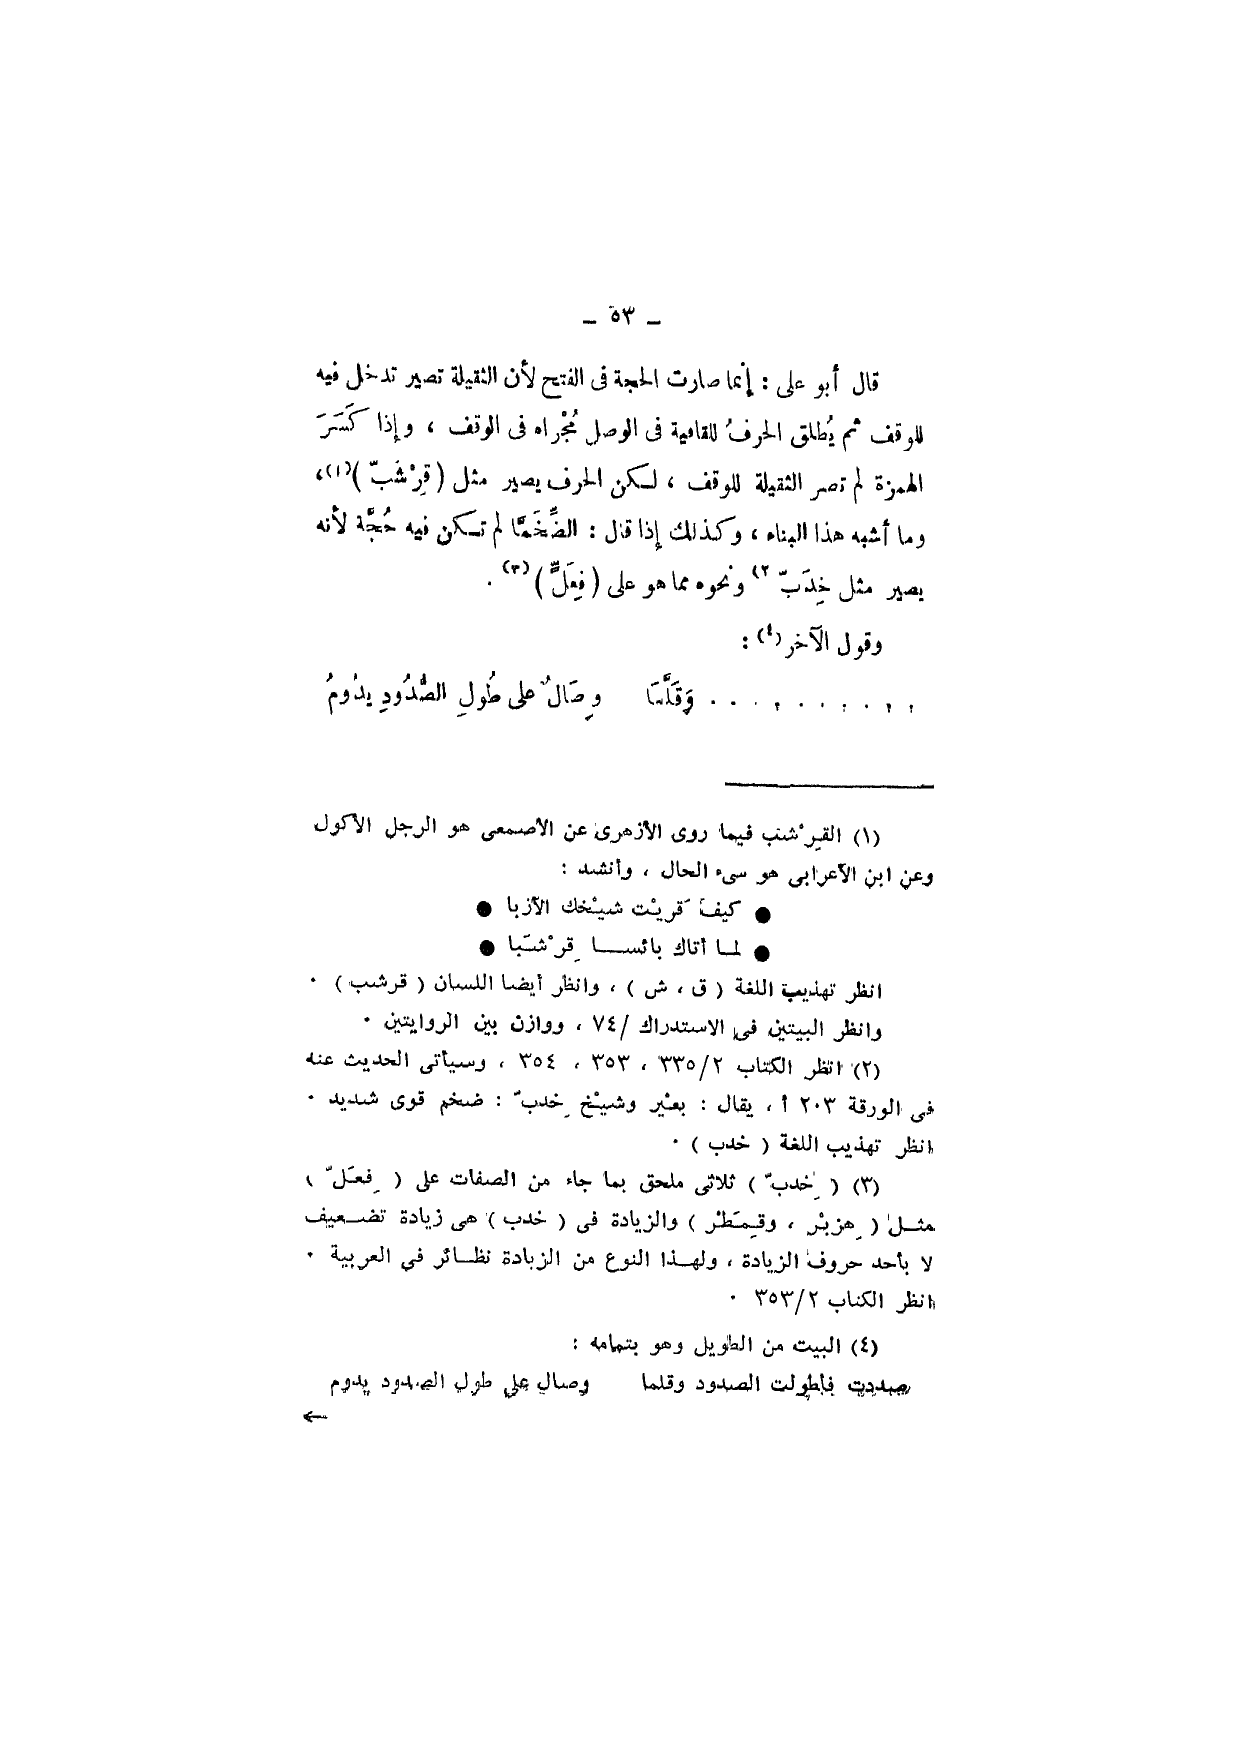 — ٥٣ —
قال أبو على : إنما صارت الحجة فى الفتح لأن الثقيلة تصير تدخل فيه
للوقف ثم يُطلق الحرفُ للقافية فى الوصل مُجْراه فى الوقف ، وإذا كَسَرَ
الهمزة لم تصر الثقيلة للوقف ، لـكن الحرف يصير مثل ( قِرْشَبّ )(١)،
وما أشبه هذا البناء ، وكذلك إذا قال : الضِّخَمَّا لم تـكن فيه حُجَّة لأنه
يصير مثل خِدَبّ ٢) ونحوه مما هو على ( فِعَلٍّ )(٣) .
وقول الآخر(٤) :
. . . . . . . . . . وَقَلَّمَا وِصَالٌ على طُولِ الصُّدُودِ يدُومُ
(١) القِرْشَب فيما روى الأزهرى عن الأصمعى هو الرجل الأكول
وعن ابن الأعرابى هو سىء الحال ، وأنشد :
● كيفَ قَريْت شيْخك الأزبا ●
● لمـا أتاك يائســـا قِرْشَبّا ●
انظر تهذيب اللغة ( ق ، ش ) ، وانظر أيضا اللسان ( قرشب ) ٠
وانظر البيتين فى الاستدراك /٧٤ ، ووازن بين الروايتين ٠
(٢) انظر الكتاب ٣٣٥/٢ ، ٣٥٣ ، ٣٥٤ ، وسيأتى الحديث عنه
فى الورقة ٢٠٣ أ ، يقال : بعيْر وشيْخ خِدبّ : ضخم قوى شديد ٠
انظر تهذيب اللغة ( خدب ) ٠
(٣) ( خِدَبّ ) ثلاثى ملحق بما جاء من الصفات على ( فِعَلّ )
مثـل ( هِزبْر ، وقِمَطْر ) والزيادة فى ( خدب ) هى زيادة تضـعيف
لا بأحد حروف الزيادة ، ولهـذا النوع من الزيادة نظـائر فى العربية ٠
انظر الكتاب ٣٥٣/٢ ٠
(٤) البيت من الطويل وهو بتمامه :
صددت فأطولت الصدود وقلما وصال على طول الصدود يدوم
←